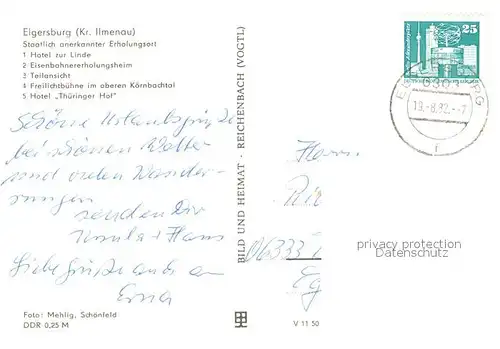 Elgersburg (Kr. Ilmenau)
Staatlich anerkannter Erholungsort
1 Hotel zur Linde
2 Eisenbahnererholungsheim
3 Teilansicht
4 Freilichtbühne im oberen Körnbachtal
5 Hotel „Thüringer Hof"
Schöne Urlaubsgrüße
bei schönen Wetter
und vielen Wander-
rungen
senden Dir
Ursula + Hans
Liebe Grüße auch an
Erna
Foto: Mehlig, Schönfeld
DDR 0,25 M
BILD UND HEIMAT · REICHENBACH (VOGTL)
V 11 50
25
19.-8.82.--7
Herrn
privacy protection
Datenschutz